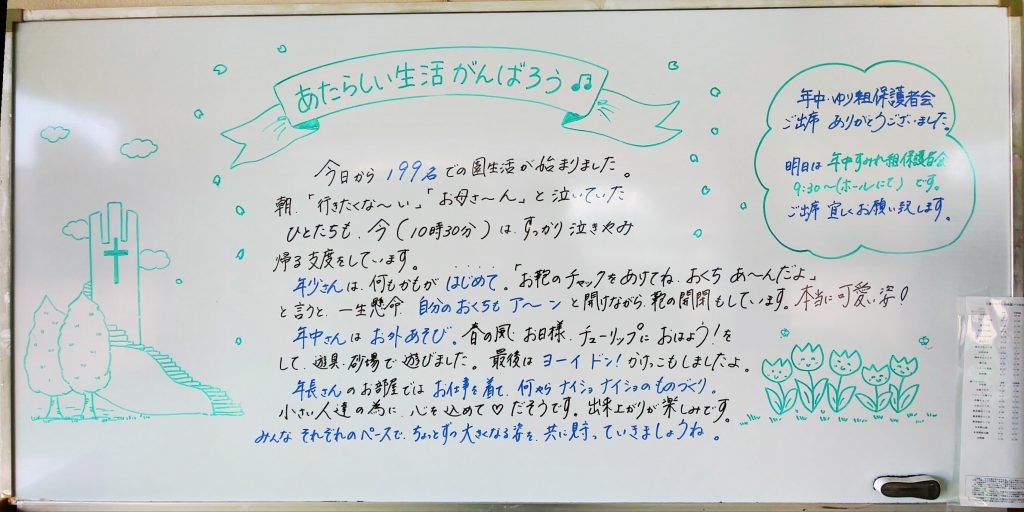 あたらしい生活がんばろう♫
今日から199名での園生活が始まりました。
朝、「行きたくな〜い」「お母さ〜ん」と泣いていた
ひとたちも、今(10時30分)は、すっかり泣きやみ
帰る支度をしています。
年少さんは、何もかもがはじめて。「お靴のチャックをあけてね、おくち あ〜んだよ」
と言うと、一生懸命、自分のおくちも ア〜ンと開けながら、靴の開閉もしています。本当に可愛い姿!
年中さんは お外あそび。春の風、お日様、チューリップに おはよう!を
して、遊具・砂場で遊びました。最後は ヨーイドン!かけっこもしましたよ。
年長さんのお部屋では お仕事を着て、何やらナイショナイショのものづくり。
小さい人達の為に、心を込めて♡だそうです。出来上がりが楽しみです。
みんな それぞれのペースで、ちょっとずつ大きくなる姿を、共に見守っていきましょうね。
年中・ゆり組保護者会
ご出席 ありがとうございました。
明日は 年中すみれ組保護者会
9:30〜(ホールにて)です。
ご出席 宜しくお願い致します。